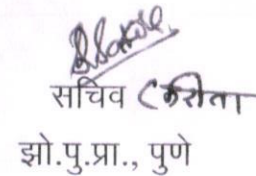 सचिव करीता
झो.पु.प्रा., पुणे